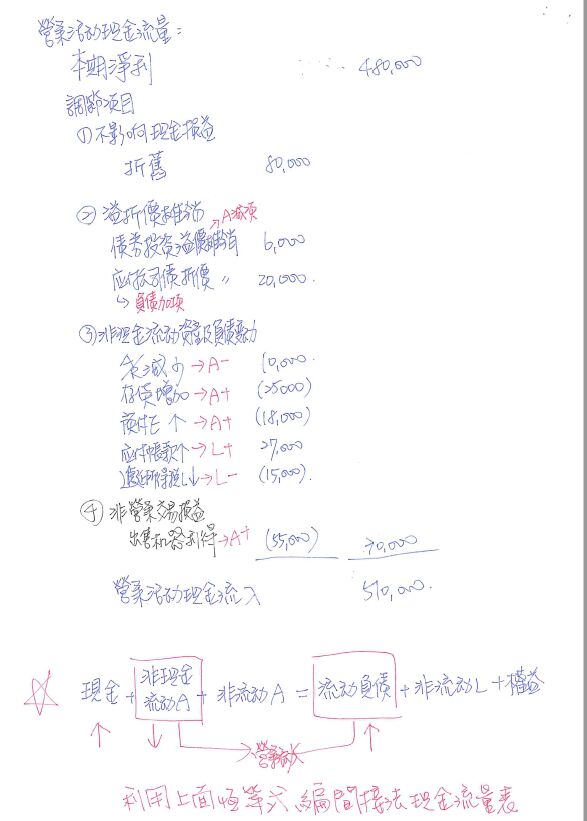 營業活动現金流量:
本期淨利 480,000
調節項目
①不影响現金損益
折舊 80,000
②溢折價攤消
→A減項
債券投資溢價攤消 6,000
应付公司債折價 〃 20,000
↳負債加項
③非現金流动資產及負債变动
減少→A- 10,000
存貨增加→A+ (25000)
預付E↑→A+ (18,000)
应付帳款↑→L+ 27,000
遞延所得稅L↓→L- (15,000)
④非營業交易損益
出售机器利得→A+ (55,000) 30,000
營業活动現金流入 510,000
☆ 現金+非現金流动A+非流动A=流动負債+非流动L+權益
↑ ↓ 營業活动 ↑
利用上面恒等式編間接法現金流量表